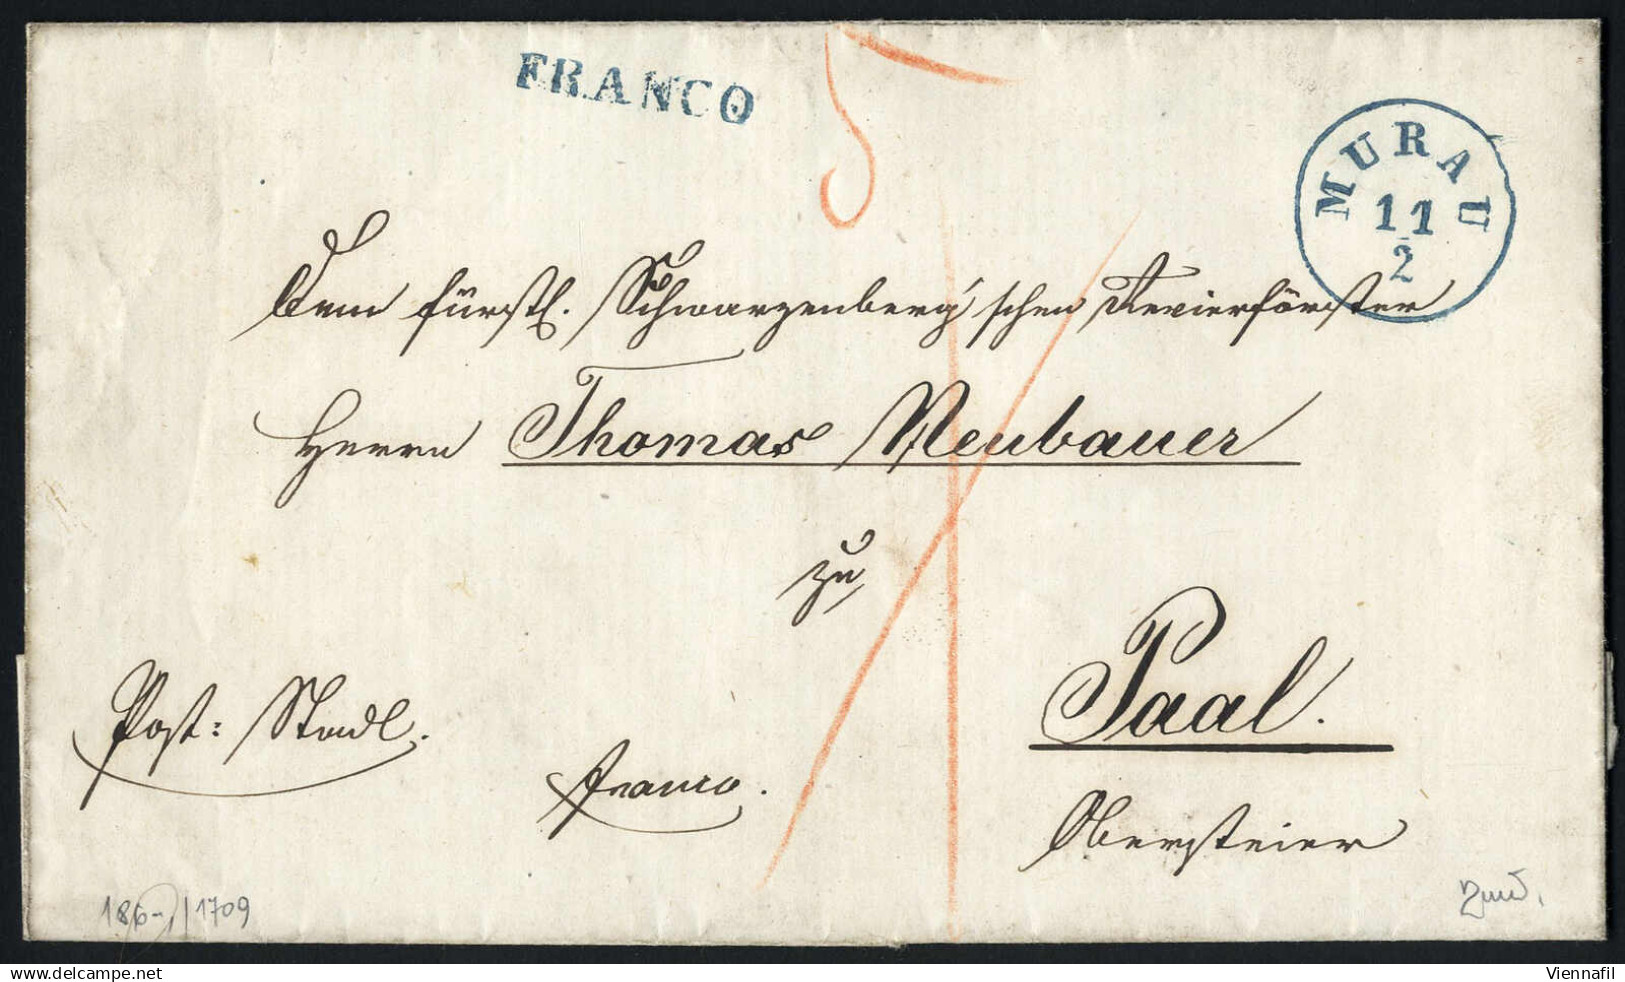 FRANCO
5
MURAU
11
2
Dem fürstl. Schwarzenberg'schen Revierförster
Herrn Thomas Neubauer
zu
Paal.
Post: Stadl.
Franco.
Obersteier
1709
Viennafil